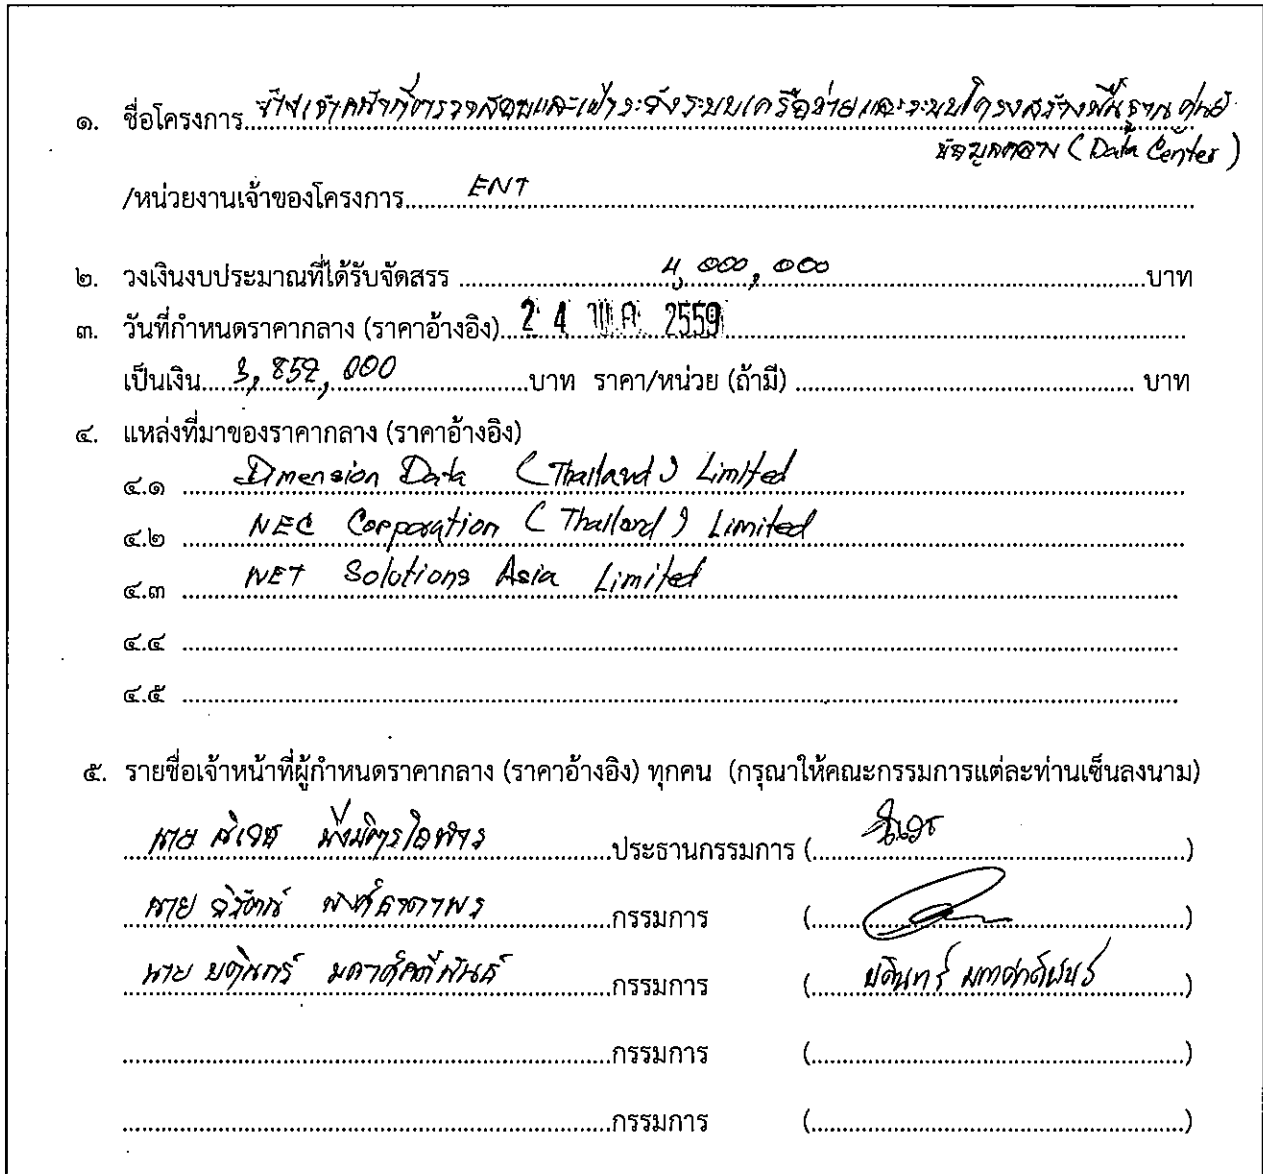 ๑. ชื่อโครงการ จ้างเจ้าหน้าที่ตรวจสอบและเฝ้าระวังระบบเครือข่ายและระบบโครงสร้างพื้นฐาน ศูนย์
ข้อมูลกลาง (Data Center)
/หน่วยงานเจ้าของโครงการ ENT
๒. วงเงินงบประมาณที่ได้รับจัดสรร 4,000,000 บาท
๓. วันที่กำหนดราคากลาง (ราคาอ้างอิง) 24 พ.ค. 2559
เป็นเงิน 3,852,000 บาท ราคา/หน่วย (ถ้ามี) บาท
๔. แหล่งที่มาของราคากลาง (ราคาอ้างอิง)
๔.๑ Dimension Data (Thailand) Limited
๔.๒ NEC Corporation (Thailand) Limited
๔.๓ NET Solutions Asia Limited
๔.๔
๔.๕
๕. รายชื่อเจ้าหน้าที่ผู้กำหนดราคากลาง (ราคาอ้างอิง) ทุกคน (กรุณาให้คณะกรรมการแต่ละท่านเซ็นลงนาม)
นาย ประธานกรรมการ ( )
นาย กรรมการ ( )
นาย บดินทร์ กรรมการ (บดินทร์ )
กรรมการ ( )
กรรมการ ( )